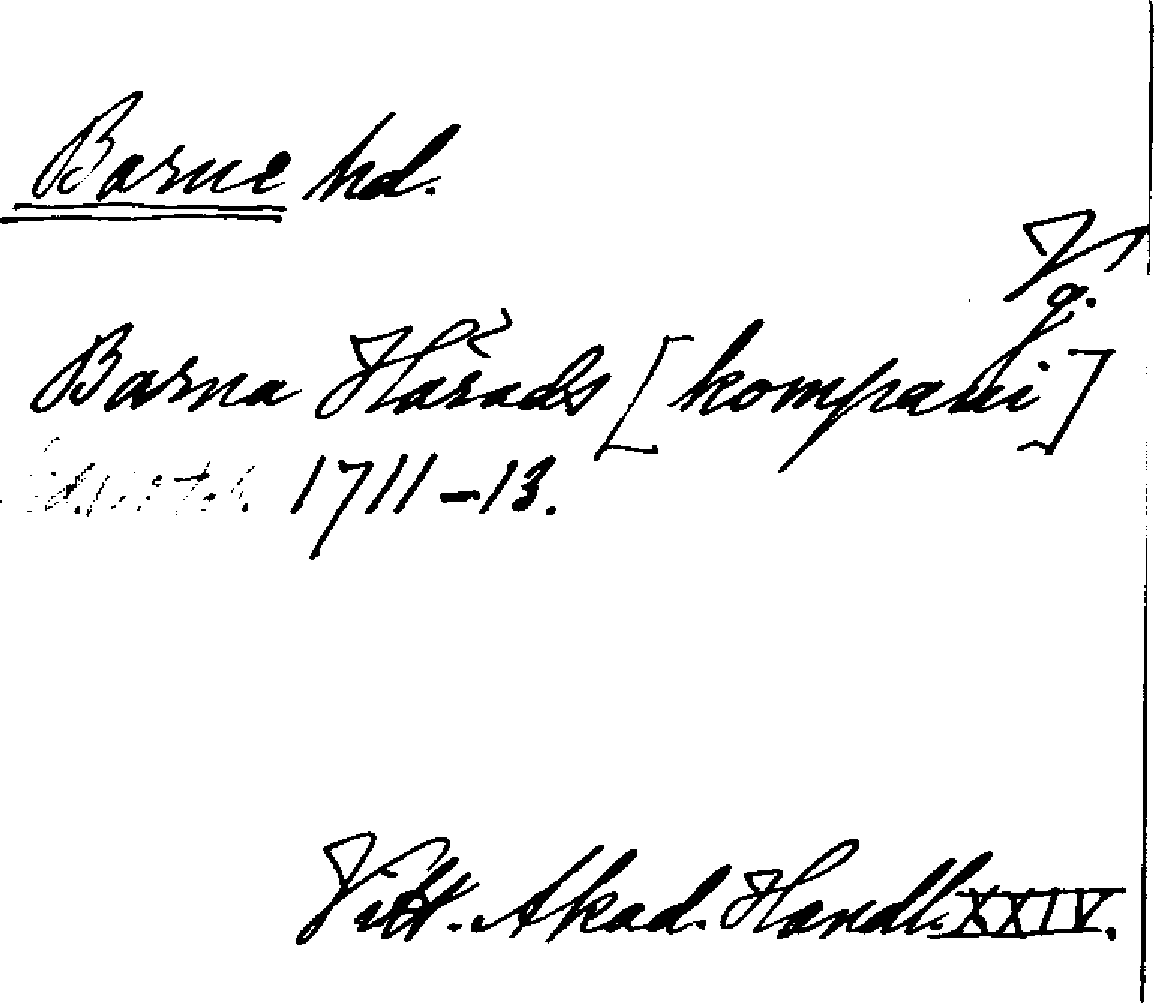 Barne hd.
Vg.
Barna Härads [kompani]
1711-13.
Vitt. Akad. Handl. XXIV.